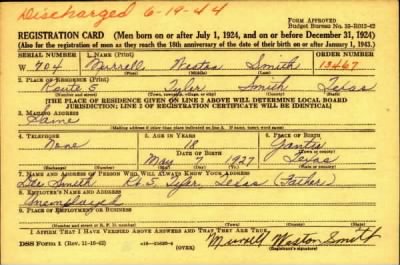 Discharged 6-19-44
FORM APPROVED
Budget Bureau No. 33-R013-42
REGISTRATION CARD (Men born on or after July 1, 1924, and on or before December 31, 1924)
(Also for the registration of men as they reach the 18th anniversary of the date of their birth on or after January 1, 1943.)
SERIAL NUMBER 1. NAME (Print) ORDER NUMBER
W 704 Murrell Weston Smith 13467
(First) (Middle) (Last)
2. PLACE OF RESIDENCE (Print)
Route 5 Tyler Smith Texas
(Number and street) (Town, township, village, or city) (County) (State)
[THE PLACE OF RESIDENCE GIVEN ON LINE 2 ABOVE WILL DETERMINE LOCAL BOARD
JURISDICTION; LINE 2 OF REGISTRATION CERTIFICATE WILL BE IDENTICAL]
3. MAILING ADDRESS
Same
(Mailing address if other than place indicated on line 2. If same, insert word same)
4. TELEPHONE 5. AGE IN YEARS 6. PLACE OF BIRTH
None 18 Yantis
DATE OF BIRTH (Town or county)
May 7 1927 Texas
(Exchange) (Number) (Mo.) (Day) (Yr.) (State or country)
7. NAME AND ADDRESS OF PERSON WHO WILL ALWAYS KNOW YOUR ADDRESS
Smith Rt 5, Tyler, Texas (Father)
8. EMPLOYER'S NAME AND ADDRESS
Unemployed
9. PLACE OF EMPLOYMENT OR BUSINESS
(Number and street or R. F. D. number) (Town) (County) (State)
I AFFIRM THAT I HAVE VERIFIED ABOVE ANSWERS AND THAT THEY ARE TRUE.
DSS Form 1 (Rev. 11-16-42) (OVER) Murrell Weston Smith
(Registrant's signature)